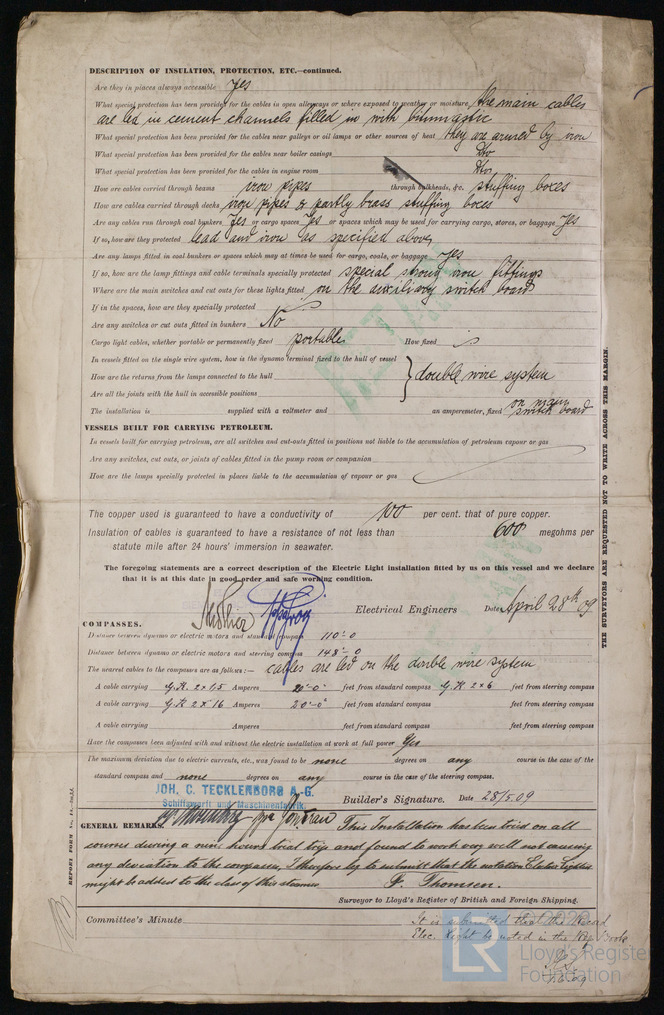 DESCRIPTION OF INSULATION, PROTECTION, ETC.—continued.
Are they in places always accessible Yes
What special protection has been provided for the cables in open alleyways or where exposed to weather or moisture, the main cables
are led in cement channels filled in with bitumastic
What special protection has been provided for the cables near galleys or oil lamps or other sources of heat they are armed by iron
What special protection has been provided for the cables near boiler casings Dto
What special protection has been provided for the cables in engine room Dto
How are cables carried through beams iron pipes through bulkheads, &c. stuffing boces
How are cables carried through decks iron pipes & partly brass stuffing boces
Are any cables run through coal bunkers Yes or cargo spaces Yes or spaces which may be used for carrying cargo, stores, or baggage Yes
If so, how are they protected lead and iron as specified above
Are any lamps fitted in coal bunkers or spaces which may at times be used for cargo, coals, or baggage Yes
If so, how are the lamp fittings and cable terminals specially protected special strong iron fittings
Where are the main switches and cut outs for these lights fitted on the auxiliary switch board
If in the spaces, how are they specially protected
Are any switches or cut outs fitted in bunkers No
Cargo light cables, whether portable or permanently fixed portable How fixed
In vessels fitted on the single wire system, how is the dynamo terminal fixed to the hull of vessel
How are the returns from the lamps connected to the hull double wire system
Are all the joints with the hull in accessible positions
The installation is supplied with a voltmeter and an amperemeter, fixed on main switch board
VESSELS BUILT FOR CARRYING PETROLEUM.
In vessels built for carrying petroleum, are all switches and cut-outs fitted in positions not liable to the accumulation of petroleum vapour or gas
Are any switches, cut outs, or joints of cables fitted in the pump room or companion
How are the lamps specially protected in places liable to the accumulation of vapour or gas
The copper used is guaranteed to have a conductivity of 100 per cent. that of pure copper.
Insulation of cables is guaranteed to have a resistance of not less than 600 megohms per
statute mile after 24 hours' immersion in seawater.
The foregoing statements are a correct description of the Electric Light installation fitted by us on this vessel and we declare
that it is at this date in good order and safe working condition.
Electrical Engineers Date April 28th 09
COMPASSES.
Distance between dynamo or electric motors and standard compass 110'-0
Distance between dynamo or electric motors and steering compass 148'-0
The nearest cables to the compasses are as follows:— cables are led on the double wire system
A cable carrying G.K. 2x1,5 Amperes 20'-0" feet from standard compass G.K 2x6 feet from steering compass
A cable carrying G.K 2x16 Amperes 20'-0" feet from standard compass feet from steering compass
A cable carrying Amperes feet from standard compass feet from steering compass
Have the compasses been adjusted with and without the electric installation at work at full power Yes
The maximum deviation due to electric currents, etc., was found to be none degrees on any course in the case of the
standard compass and none degrees on any course in the case of the steering compass.
JOH. C. TECKLENBORG A-G.
Schiffswerft und Maschinenfabrik.
Builder's Signature. Date 28/5.09
GENERAL REMARKS. This Installation has been tried on all
courses during a nine hours trial trip and found to work very well not causing
any deviation to the compasses, I therefore beg to submit that the notation Electric Lighted
might be added to the class of this steamer. F. Thomsen.
Surveyor to Lloyd's Register of British and Foreign Shipping.
Committee's Minute
It is submitted that the Record
Elec. Light be noted in the Reg. Book
THE SURVEYORS ARE REQUESTED NOT TO WRITE ACROSS THIS MARGIN.
LR Lloyd's Register
Foundation